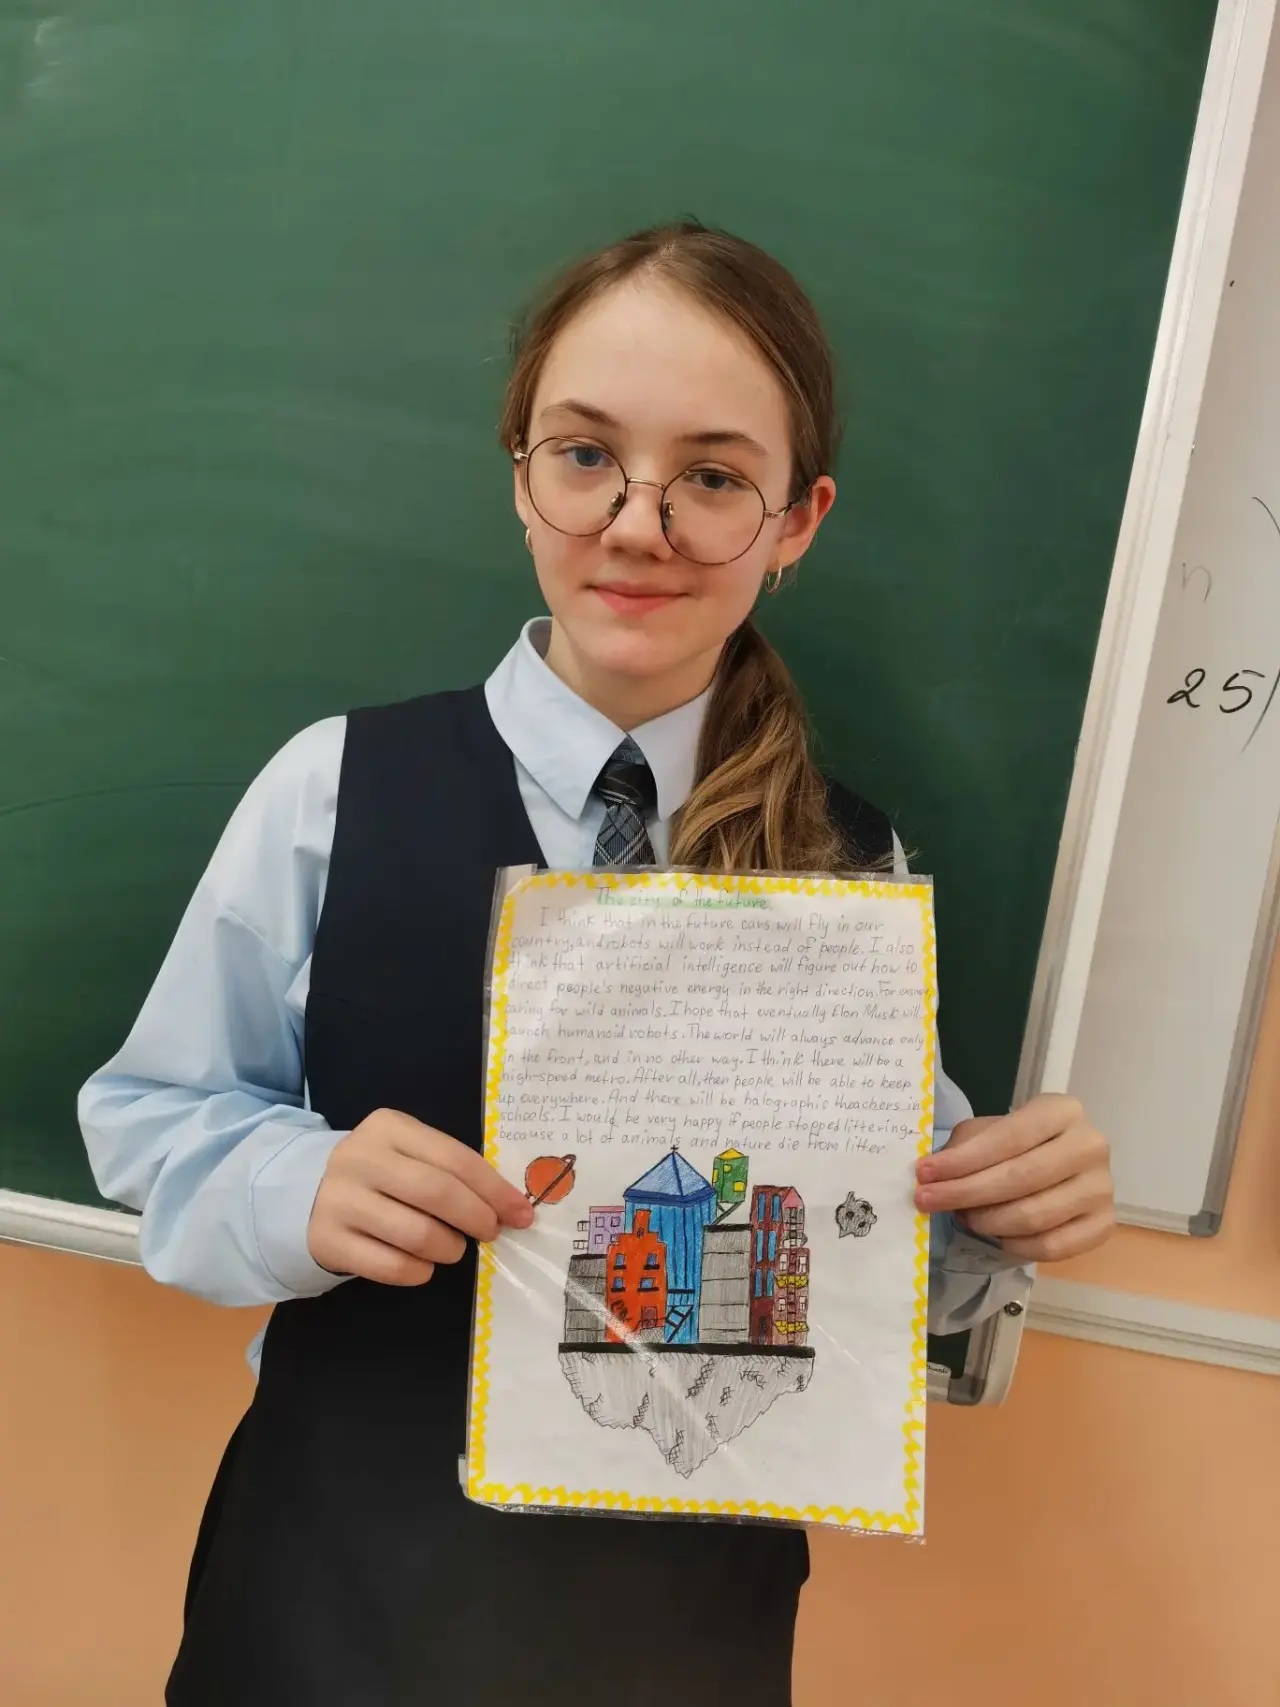 The city of the future.
I think that in the future cars will fly in our
country, and robots will work instead of people. I also
think that artificial intelligence will figure out how to
direct people's negative energy in the right direction. For
caring for wild animals. I hope that eventually Elon Musk will
launch humanoid robots. The world will always advance only
in the front, and in no other way. I think there will be a
high-speed metro. After all, then people will be able to keep
up everywhere. And there will be halographic theachers in
schools. I would be very happy if people stopped littering,
because a lot of animals and nature die from litter.
25